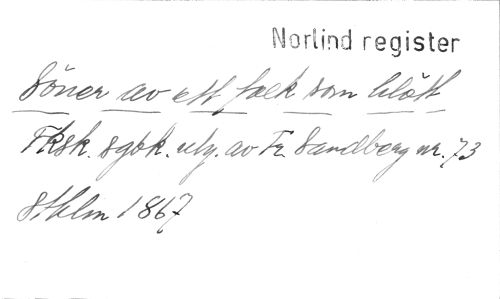 Norlind register
Söner av ett folk som blött
Fksk. sgbk. utg. av Fr. Sandberg nr. 73
Sthlm 1867